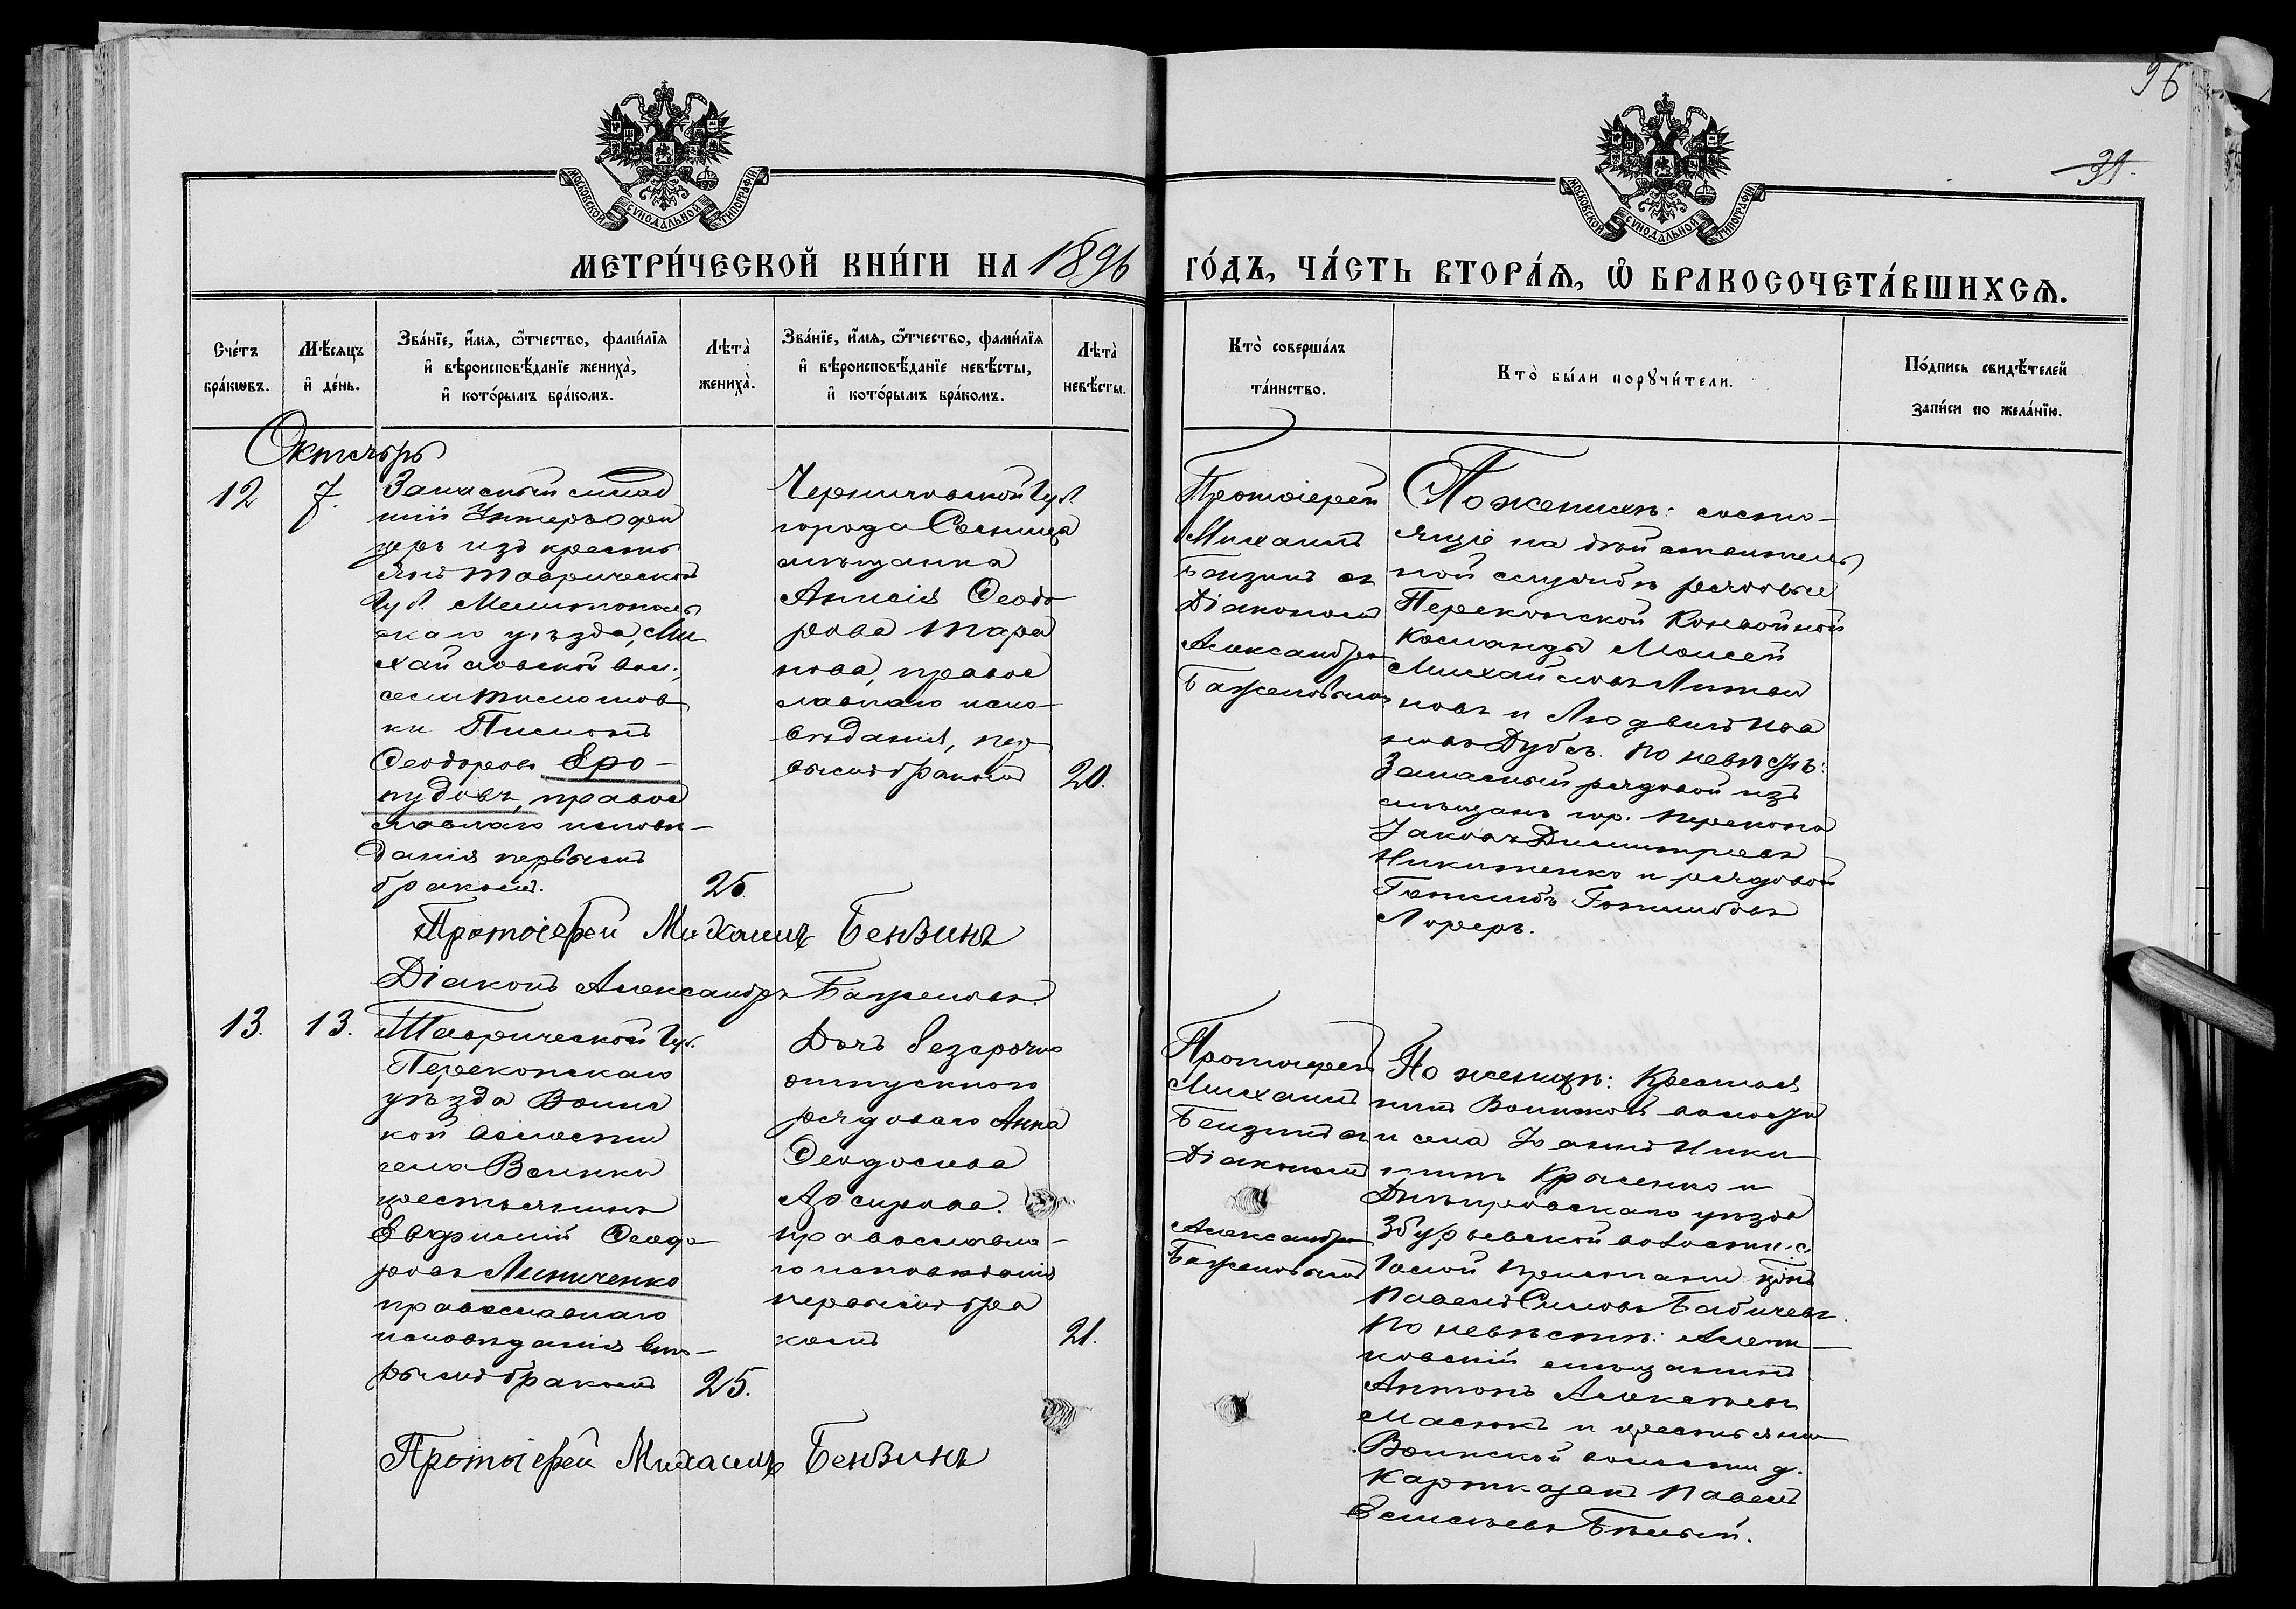 96
39.
МОСКОВСКОЙ СѴНОДАЛЬНОЙ ТИПОГРАФІИ
МОСКОВСКОЙ СѴНОДАЛЬНОЙ ТИПОГРАФІИ
МЕТРИ́ЧЕСКОЙ КНИ́ГИ НА 1896 ГО́ДЪ, ЧА́СТЬ ВТОРА́Я, Ѡ БРАКОСОЧЕТА́ВШИХСЯ.
Сче́тъ
бра́кѡвъ.
Мѣ́сяцъ
и҆ де́нь.
Зва́нїе, и҆́мя, ѻ҆́тчество, фами́лїя
и҆ вѣроисповѣ́данїе жениха̀,
и҆ кото́рымъ бра́комъ.
Лѣта̀
жениха̀.
Зва́нїе, и҆́мя, ѻ҆́тчество, фами́лїя
и҆ вѣроисповѣ́данїе невѣ́сты,
и҆ кото́рымъ бра́комъ.
Лѣта̀
невѣ́сты.
Кто̀ соверша́лъ
та́инство.
Кто̀ бы́ли порꙋчи́тели.
По́дпись свидѣ́телей
за́писи по жела́нїю.
Октябрь
12
7.
Запасный млад
шій Унтеръ-офи
церъ изъ кресть
янъ Таврической
Губ. Мелитополь
скаго уѣзда, Ми
хайловской вол.,
села Тимошов
ки Пименъ
Ѳеодоровъ Еро-
пудовъ, правос
лавнаго исповѣ-
данія первымъ
бракомъ.
25.
Черниговской Губ
города Сосницы
мѣщанка
Анисія Ѳеодо
рова Тара
нова, правос
лавнаго испо-
вѣданія, пер
вымъ бракомъ
20.
Протоіерей
Михаилъ
Бензинъ съ
Діакономъ
Александромъ
Баженовымъ
По женихѣ: состо-
ящіе на дѣйствитель
ной службѣ рядовые
Перекопской Конвойной
Команды Моисей
Михайловъ Литви
новъ и Людвигъ Ива
новъ Дубъ. По невѣстѣ:
Запасный рядовой изъ
мѣщанъ гор. Перекопа
Іаковъ Димитріевъ
Никитенко и рядовой
Готлибъ Готлибовъ
Лореръ.
Протоіерей Михаилъ Бензинъ
Діаконъ Александръ Баженовъ.
13.
13.
Таврической Губ.
Перекопскаго
уѣзда Воинс
кой волости
села Воинки
крестьянинъ
Евфимій Ѳеодо
ровъ Литиченко
православнаго
исповѣданія вто-
рымъ бракомъ
25.
Дочь безсрочно
отпускного
рядового Анна
Ѳеодосиева
православна-
го исповѣданія
первымъ бра
комъ
21.
Протоіерей
Михаилъ
Бензинъ съ
Діакономъ
Александромъ
Баженовымъ
По женихѣ: Крестья
нинъ Воинской волости
и села Іоаннъ Ники
тинъ Красенко и
Днѣпровскаго уѣзда
Збурьевской волости с.
Голой Пристани кр-нъ
Павелъ Симовъ Бабичевъ.
По невѣстѣ: Алеш-
ковскій мѣщанинъ
Антонъ Алексѣевъ
Масюкъ и крестьянинъ
Воинской волости д.
Картказакъ Павелъ
Елисѣевъ Бѣлый.
Протоіерей Михаилъ Бензинъ